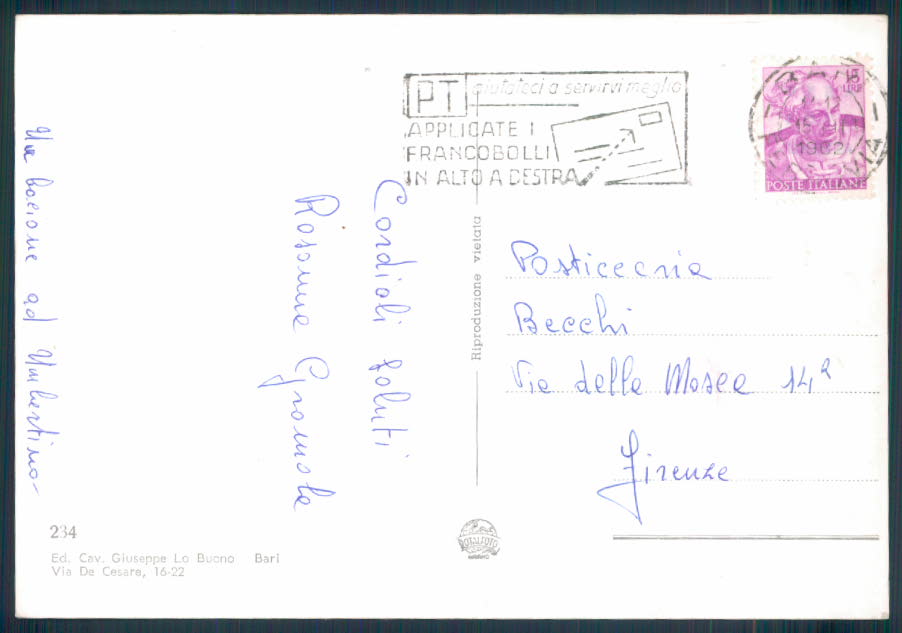 PT aiutateci a servirvi meglio
APPLICATE I
FRANCOBOLLI
IN ALTO A DESTRA
15
LIRE
1962
POSTE ITALIANE
Un bacione ad Umbertino-
Cordiali saluti
Rosanna
Riproduzione vietata
Pasticceria
Becchi
Via della Mosca 14
Firenze
234
Ed. Cav. Giuseppe Lo Buono Bari
Via De Cesare, 16-22